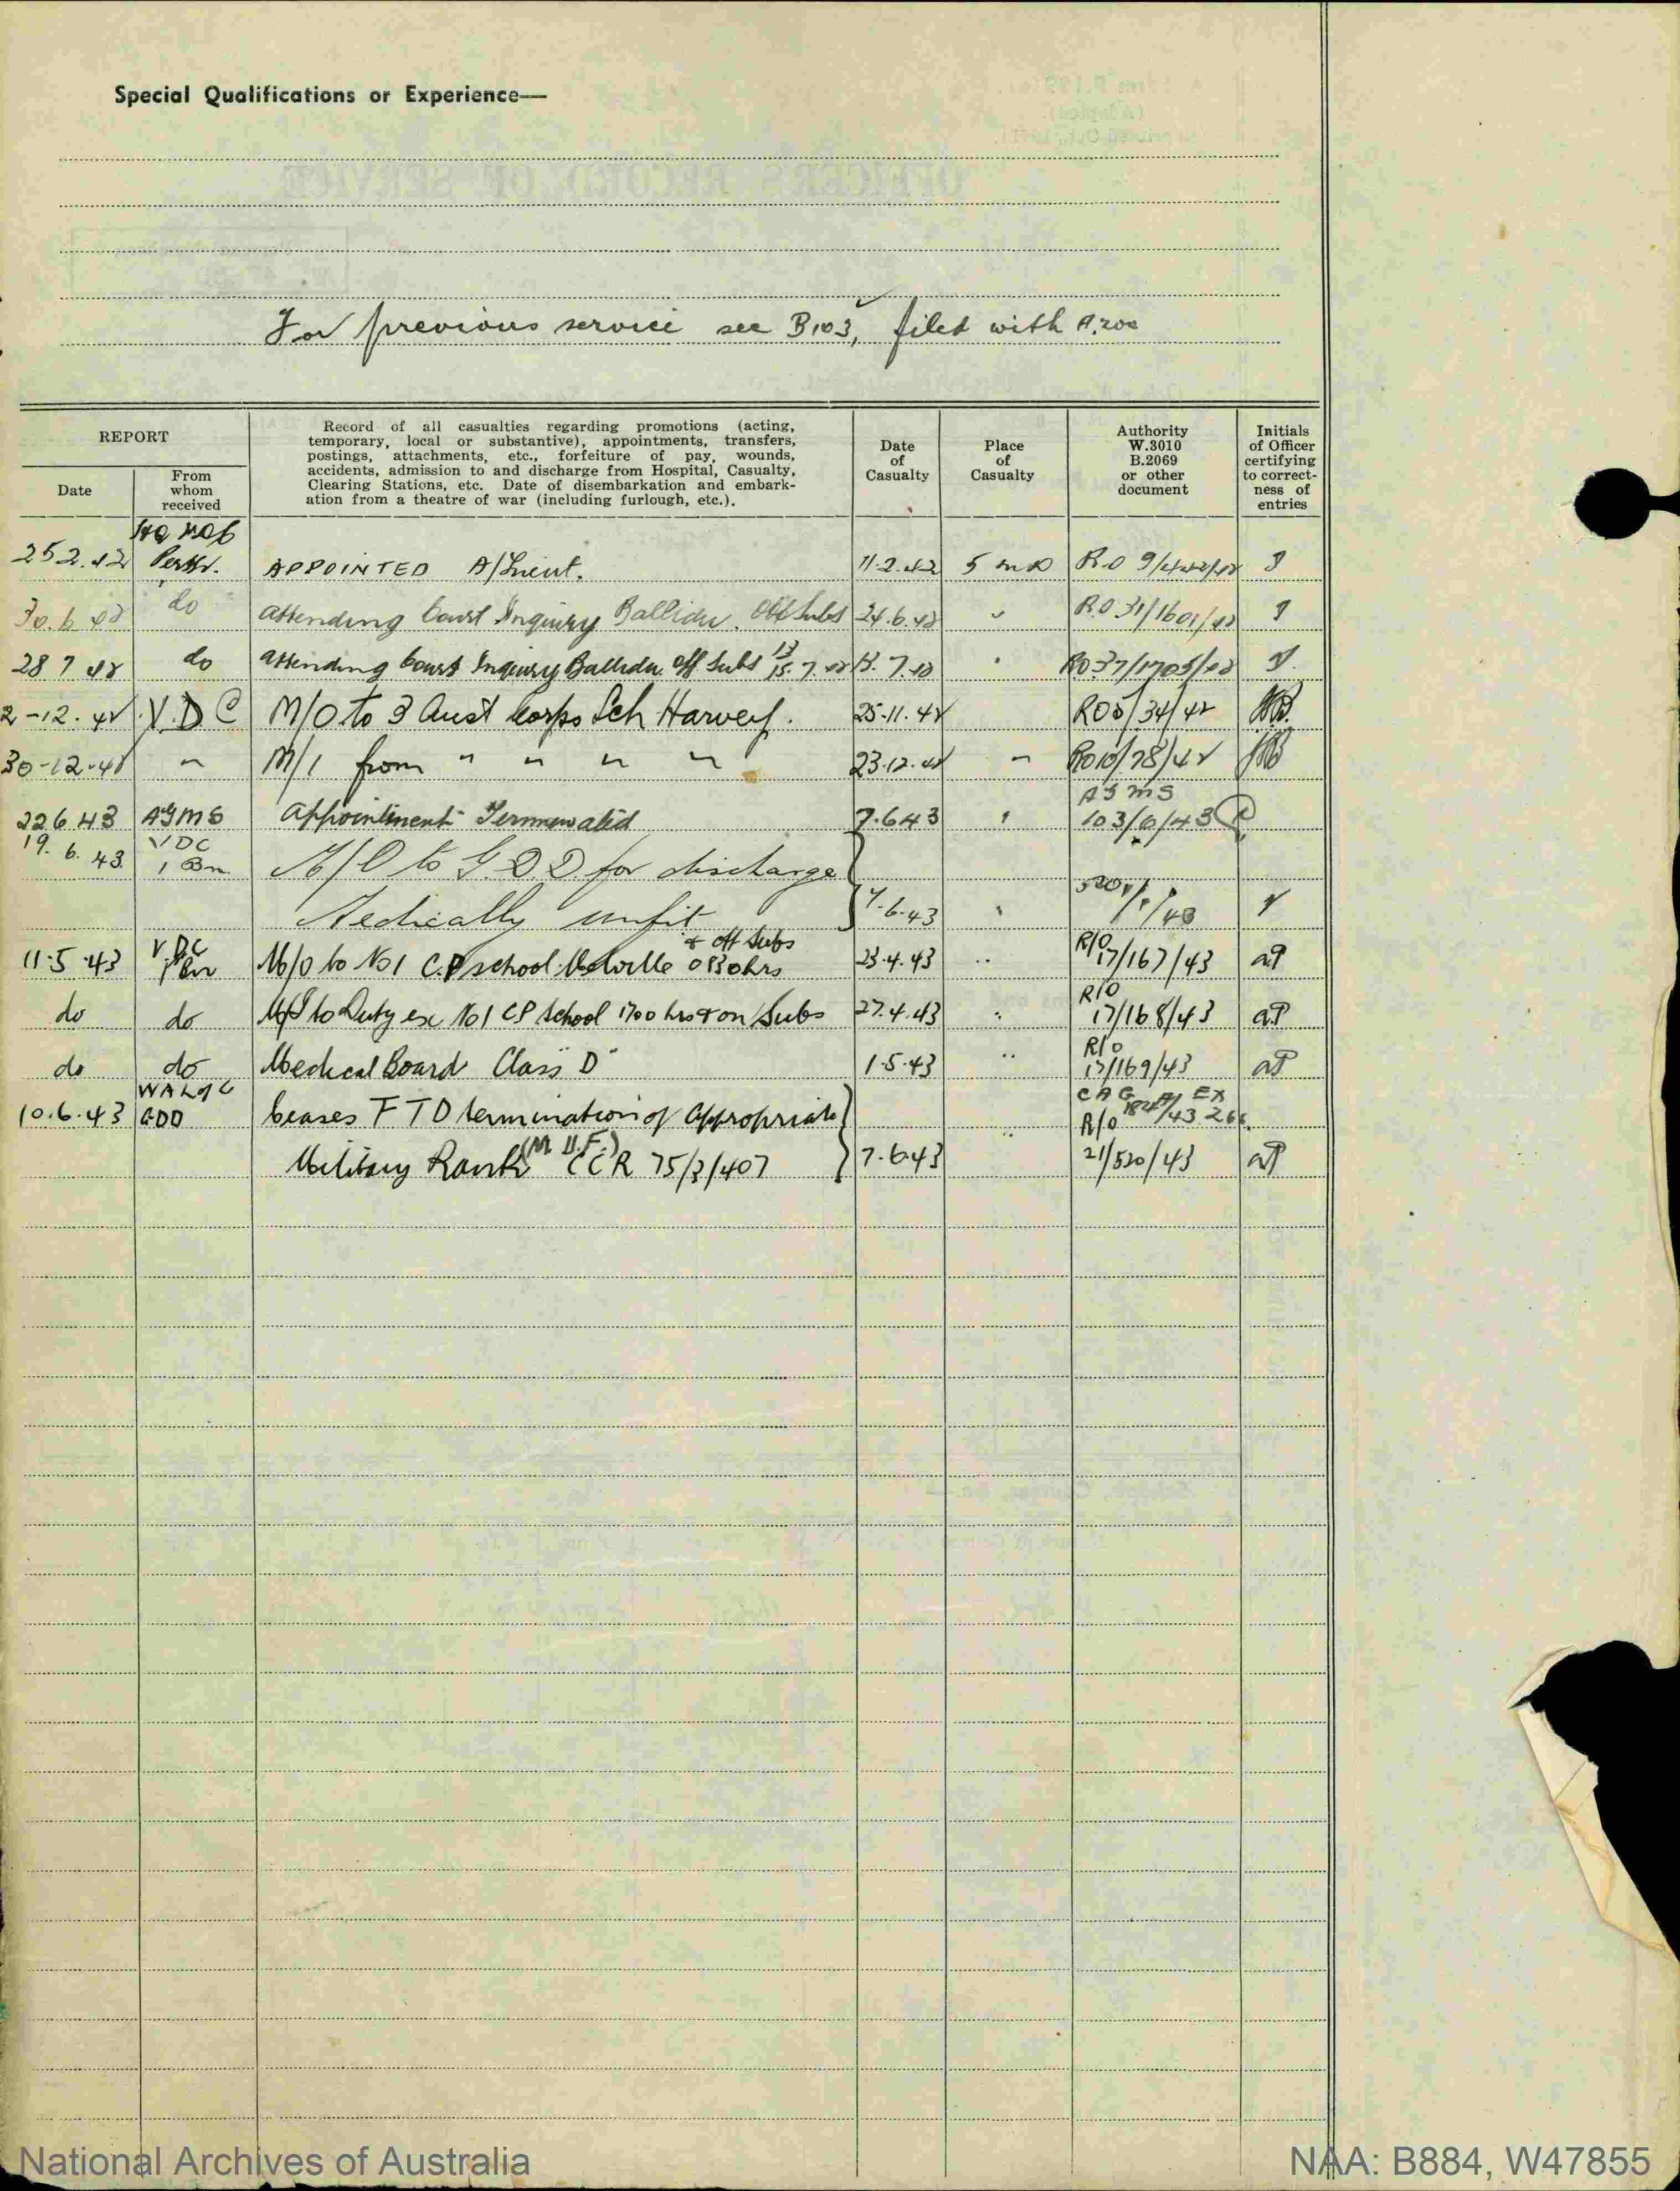 Special Qualifications or Experience—
For previous service see B103, filed with A.200
REPORT
Date
From whom received
Record of all casualties regarding promotions (acting,
temporary, local or substantive), appointments, transfers,
postings, attachments, etc., forfeiture of pay, wounds,
accidents, admission to and discharge from Hospital, Casualty,
Clearing Stations, etc. Date of disembarkation and embark-
ation from a theatre of war (including furlough, etc.).
Date of Casualty
Place of Casualty
Authority W.3010 B.2069 or other document
Initials of Officer certifying to correct-ness of entries
25.2.42 Perth. APPOINTED A/Lieut. 11.2.42 5 MD R.O 9/
30.6.42 do attending Court Inquiry Ballidu. Off Subs 24.6.42 R.O 31/1601/42
28 7 42 do attending Court Inquiry Ballidu off Subs 13 15.7.42 7.42 RO 37/1705/42
2-12.42 V.D C M/O to 3 Aust Corps Sch Harvey. 25-11.42 /34/42
30-12-42 " M/I from " " " " 23.12.42 " RO10/78/42
AGMS
22 6 43 Appointment Terminated 7.6 43 103/6/43
19.6.43 VDC 1 Bn M/O to G.D.D. for discharge
Medically unfit 7.6.43
& off Subs
11.5.43 V.DC 1 Bn M/O to No 1 C.P school Melville 0830hrs 23.4.43 " R/O 17/167/43 aP
do do M/I to Duty ex No 1 CP School 1700 hrs & on Subs 27.4.43 " R/O 17/168/43 aP
do do Medical Board Class "D" 1.5.43 " R/O 17/169/43 aP
WAL of C CAG EX
10.6.43 GDD Ceases FTD termination of appropriate R/O
Military Rank (M.U.F.) CCR 75/3/407 7.6.43 " 21/520/43 aP
National Archives of Australia
NAA: B884, W47855